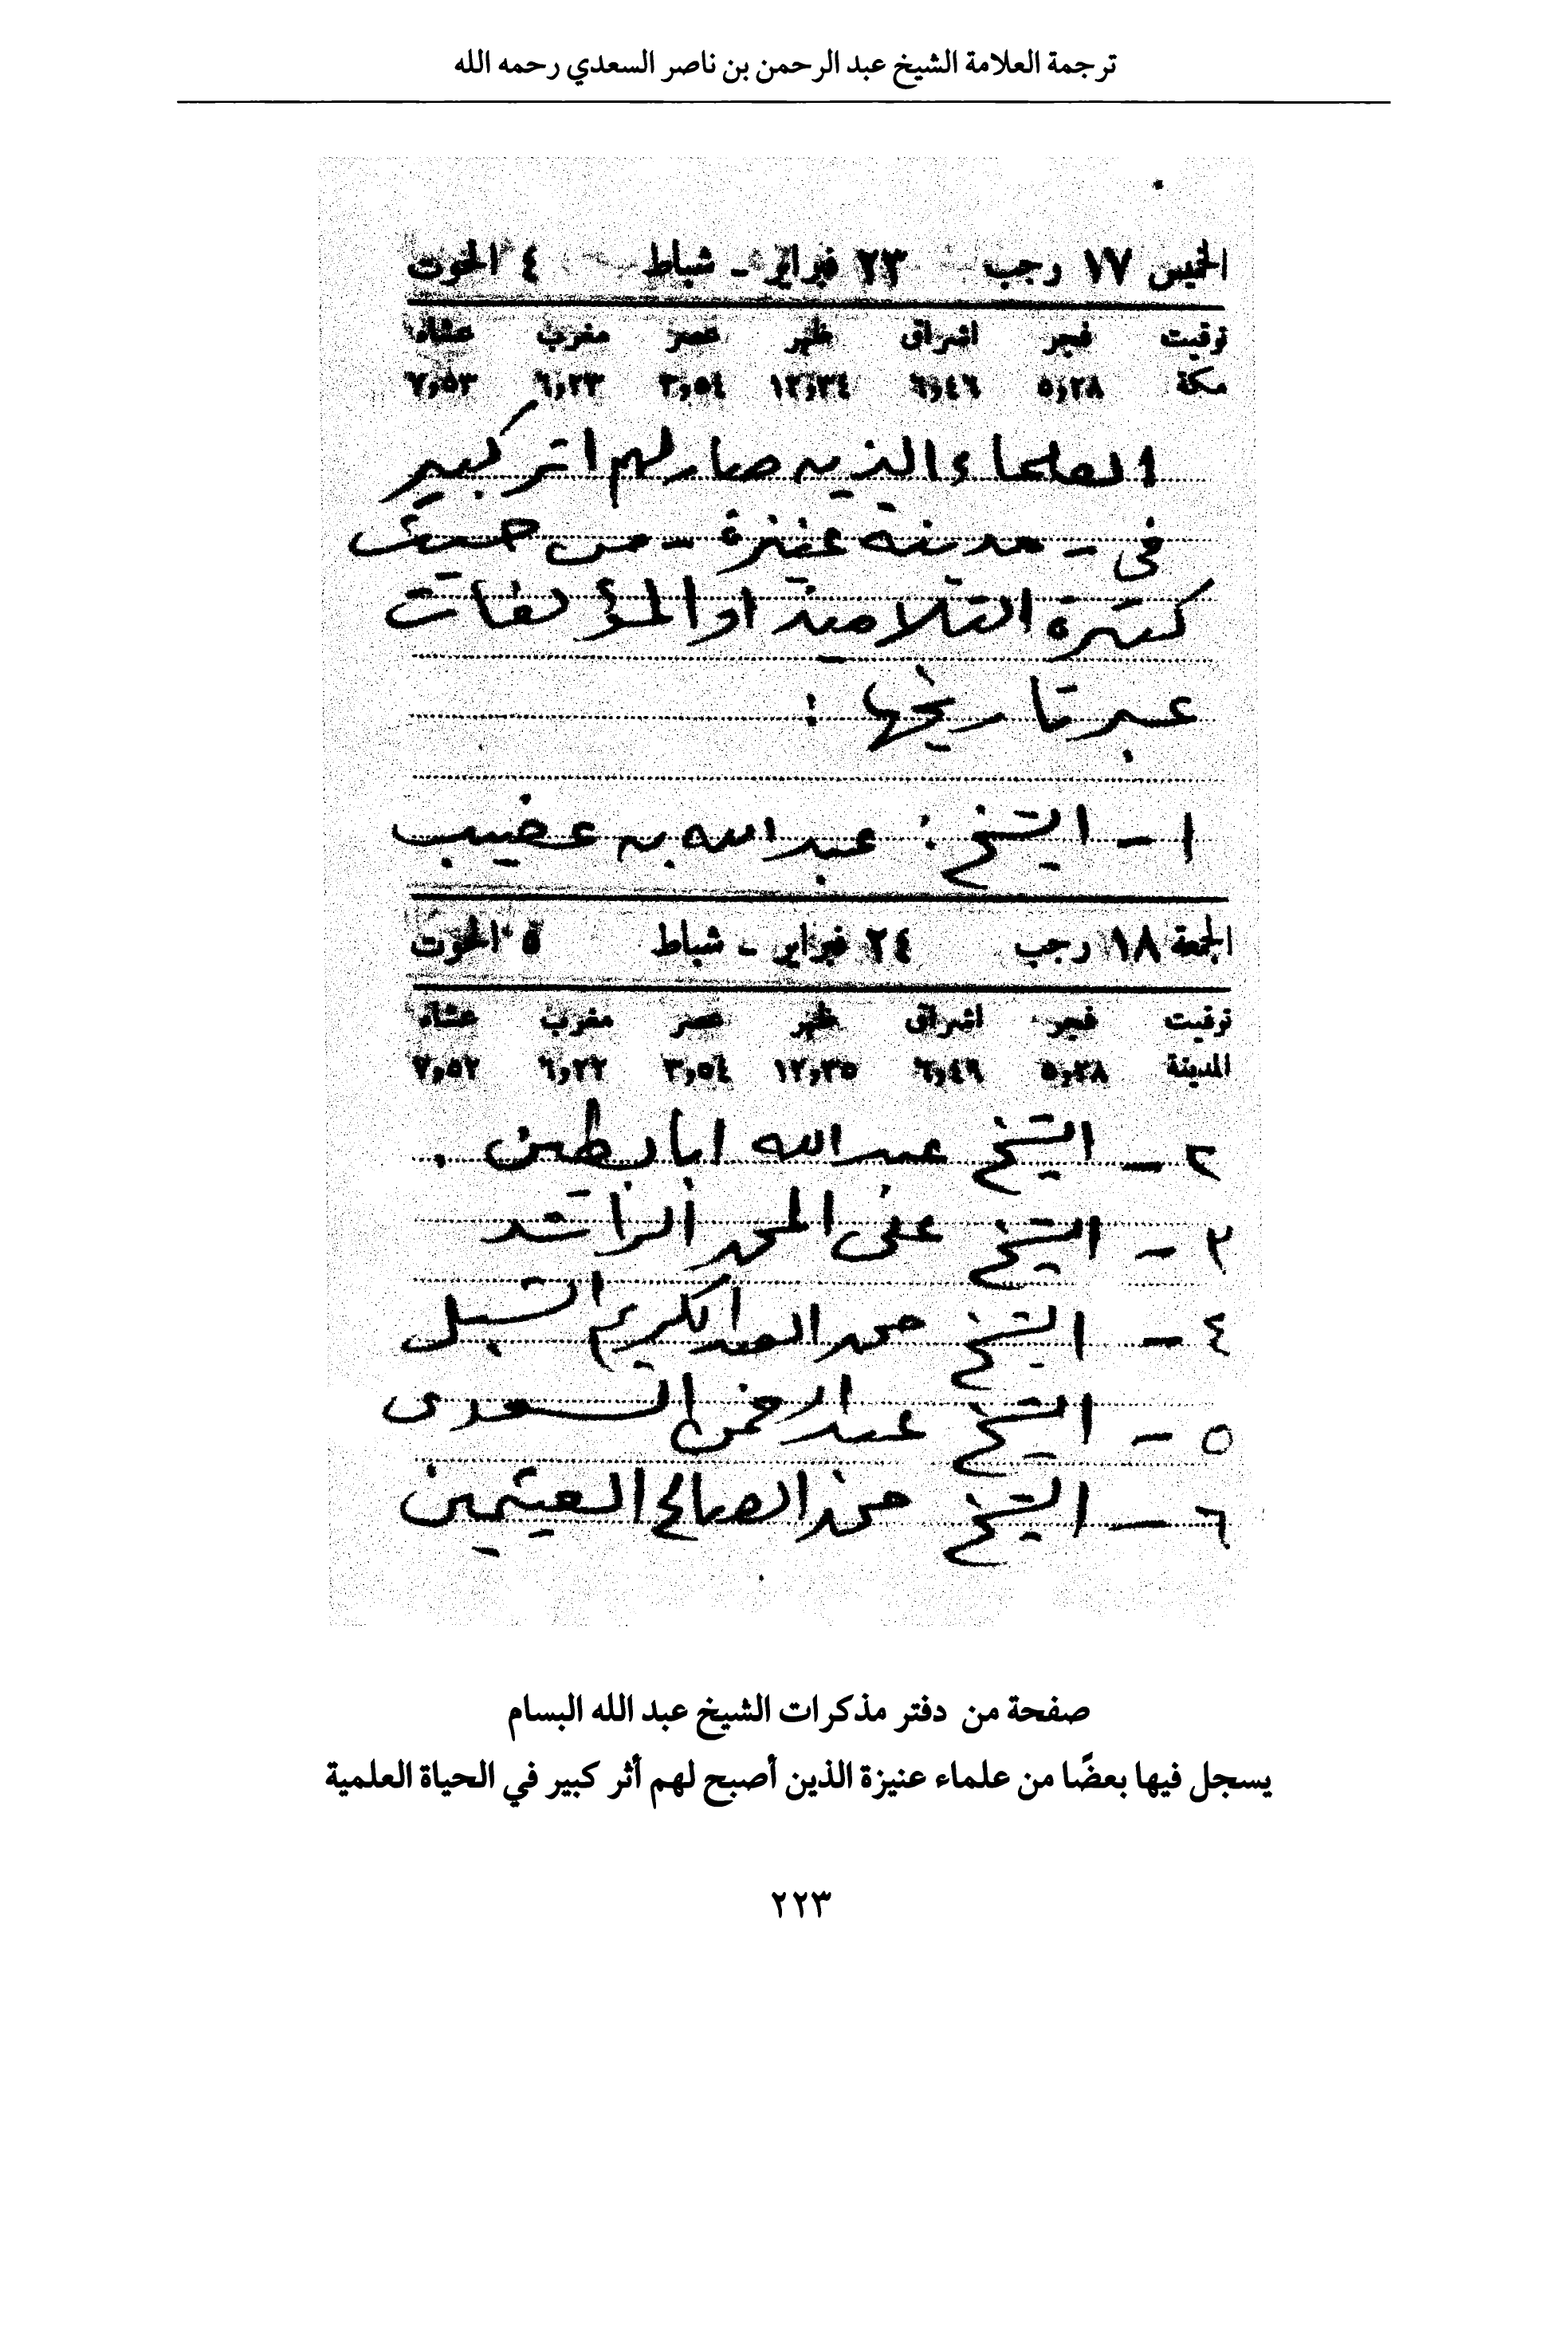 ترجمة العلامة الشيخ عبد الرحمن بن ناصر السعدي رحمه الله
الخميس ١٧ رجب ٢٣ فبراير - شباط ٤ الحوت
توقيت فجر اشراق ظهر عصر مغرب عشاء
مكة ٥,٢٨ ٦,٤٦ ١٢,٣٤ ٣,٥٤ ٦,٢٣ ٧,٥٣
العلماء الذين صار لهم اثر كبير
في - مدينة عنيزة - من حيث
كثرة التلاميذ او المؤلفات
عبر تاريخها :
١ - الشيخ : عبد الله بن عضيب
الجمعة ١٨ رجب ٢٤ فبراير - شباط ٥ الحوت
توقيت فجر اشراق ظهر عصر مغرب عشاء
المدينة ٥,٢٨ ٦,٤٩ ١٢,٣٥ ٣,٥٤ ٦,٢٢ ٧,٥٢
٢ - الشيخ عبد الله ابابطين .
٣ - الشيخ علي المحمد الراشد
٤ - الشيخ محمد العبد الكريم الشبل
٥ - الشيخ عبد الرحمن السعدى
٦ - الشيخ محمد الصالح العثيمين
صفحة من دفتر مذكرات الشيخ عبد الله البسام
يسجل فيها بعضًا من علماء عنيزة الذين أصبح لهم أثر كبير في الحياة العلمية
٢٢٣